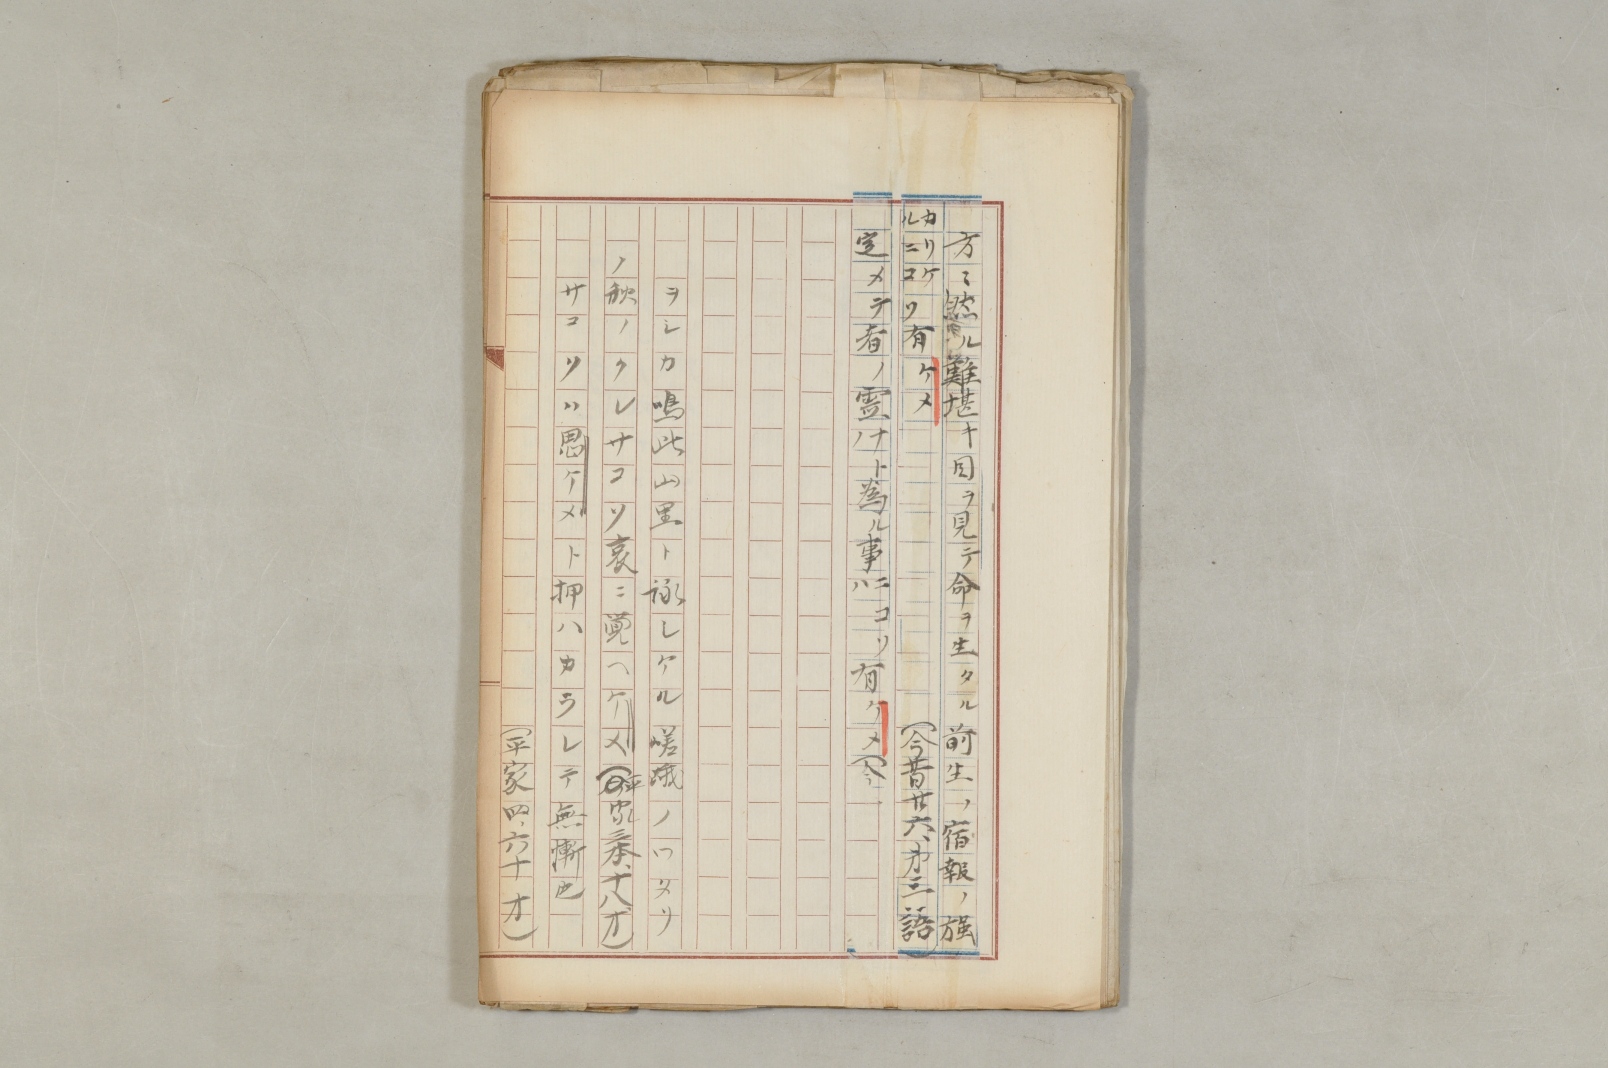 方ミ然ル難堪キ目ヲ見テ命ヲ生タル前生ノ宿報ノ強
カリケルニコソ有ケメ
(今昔廿六、オ三語)
定メテ者ノ霊ノナト為ル事ニハコソ有ケメ(今
ヲシカ鳴此山里ト詠しケル嵯峨ノワタリ
ノ秋ノクレサコソ哀ニ覚ヘケメ(平家三本、十八オ)
サコソハ思ケメト押ハカラレテ無慚也
(平家四、六十オ)